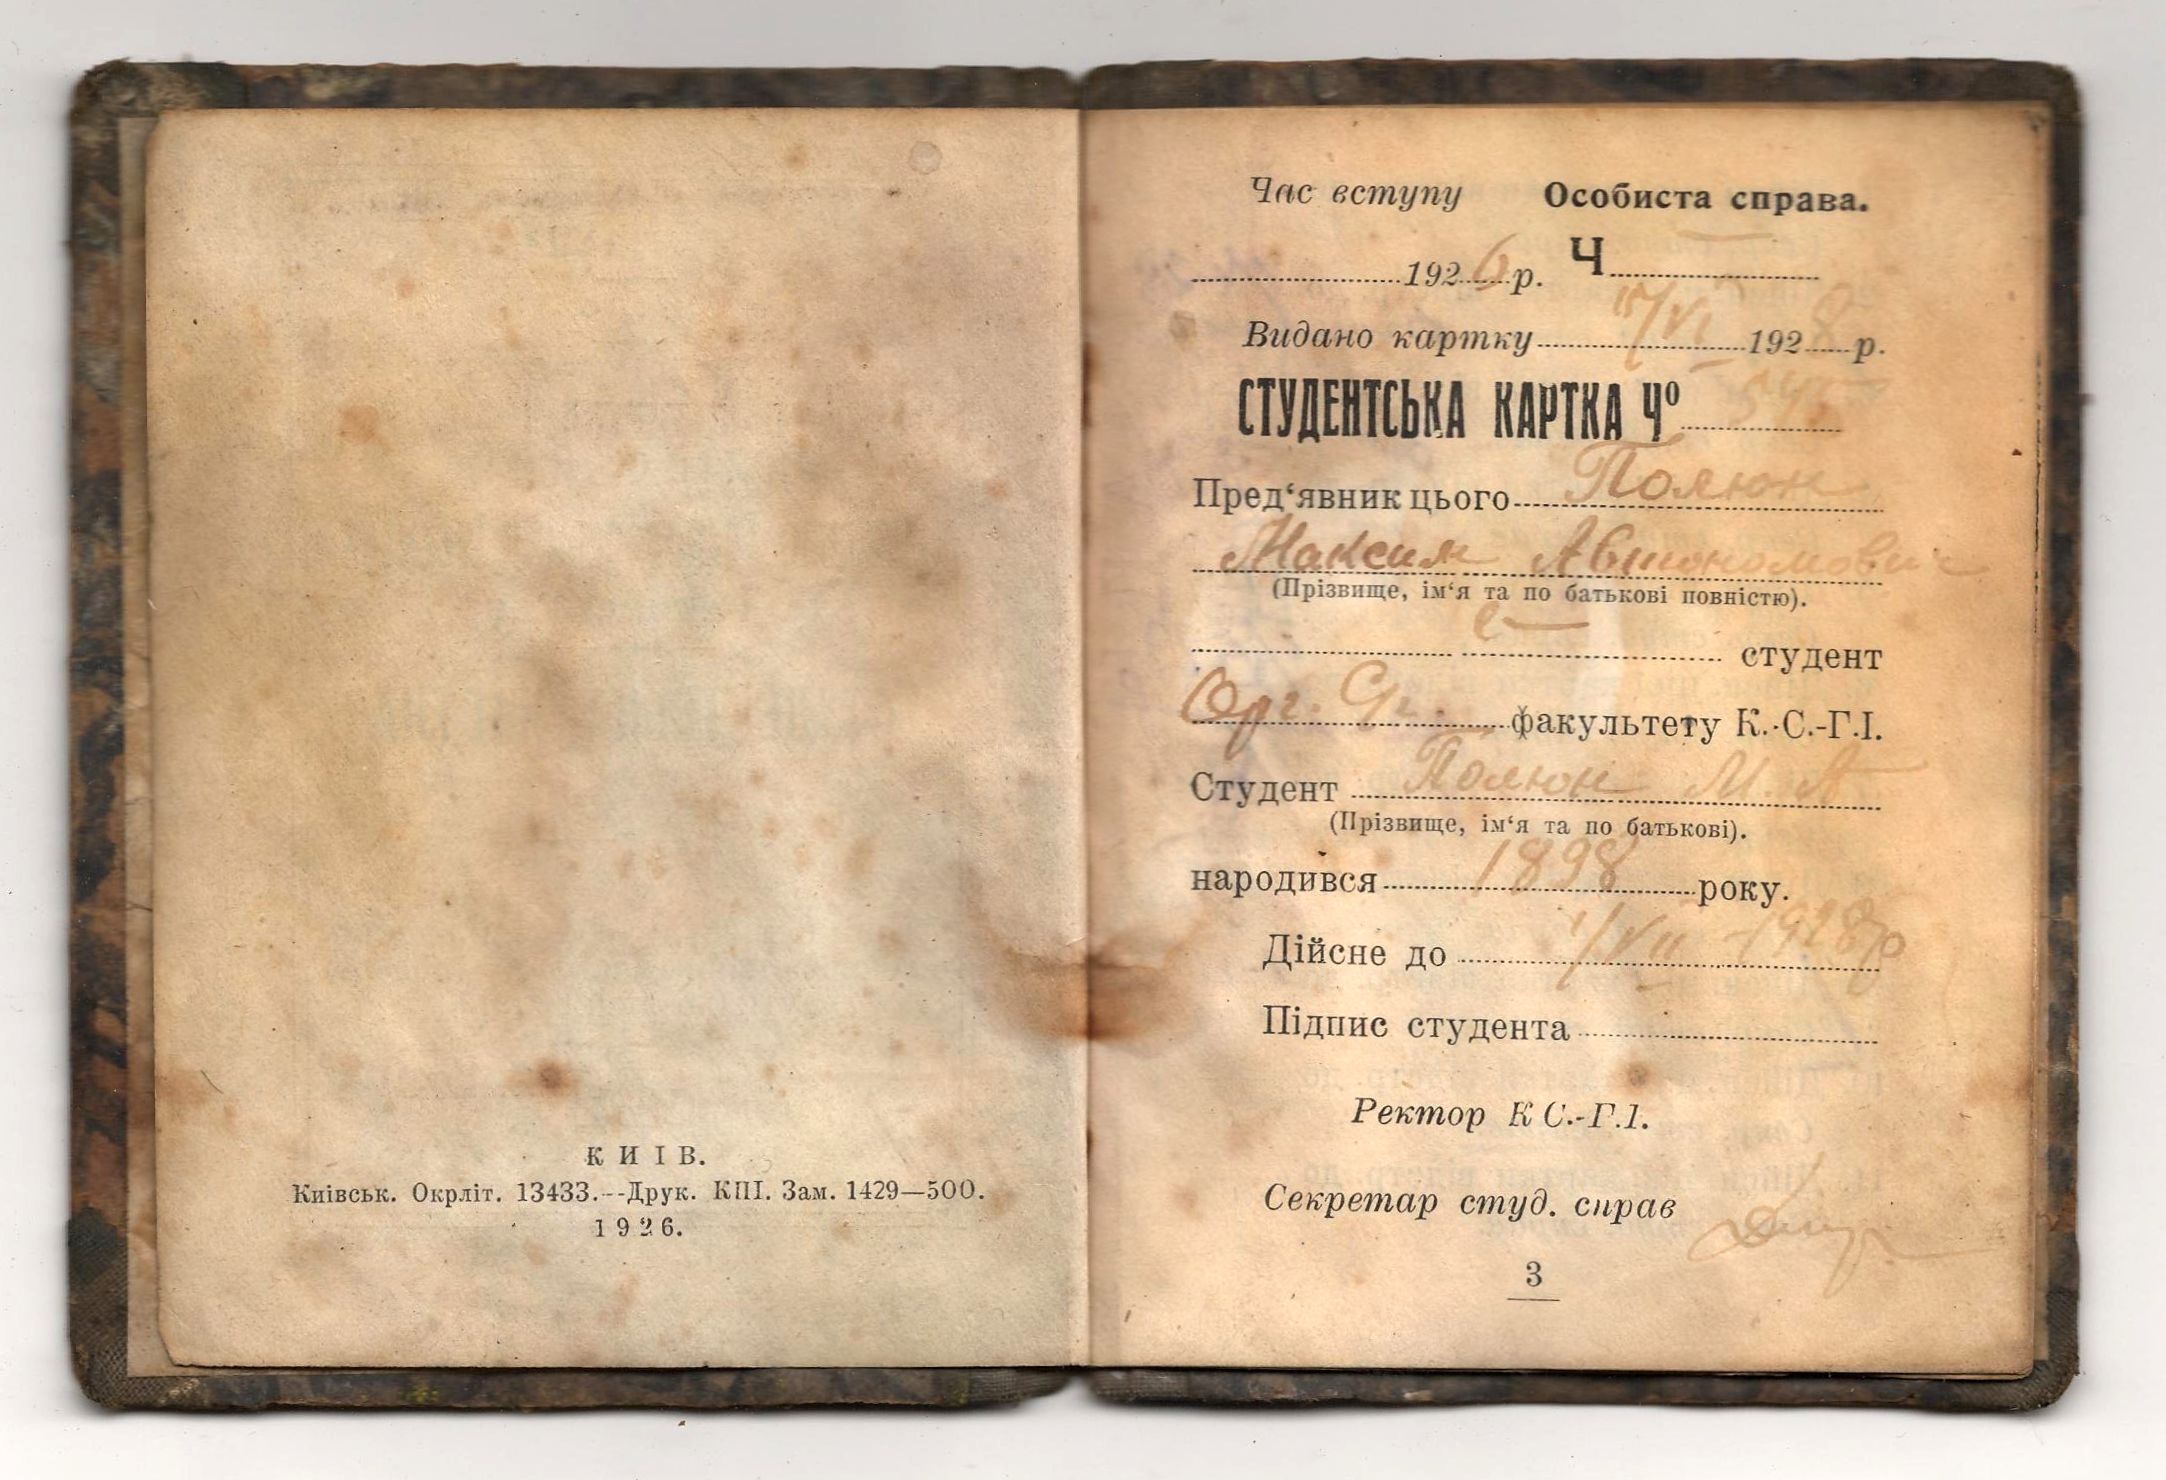 КИІВ.
Київськ. Окрліт. 13433.--Друк. КПІ. Зам. 1429—500.
1926.
Час вступу Особиста справа.
1926 р. Ч
Видано картку 15/VI 1928 р.
СТУДЕНТСЬКА КАРТКА Ч⁰ 545
Пред‘явник цього Полюн
Максим Автономович
(Прізвище, ім‘я та по батькові повністю).
є — студент
Орг. факультету К.-С.-Г.І.
Студент Полюн М. А
(Прізвище, ім‘я та по батькові).
народився 1898 року.
Дійсне до 1/VII 1928 р
Підпис студента
Ректор К С.-Г.І.
Секретар студ. справ
3